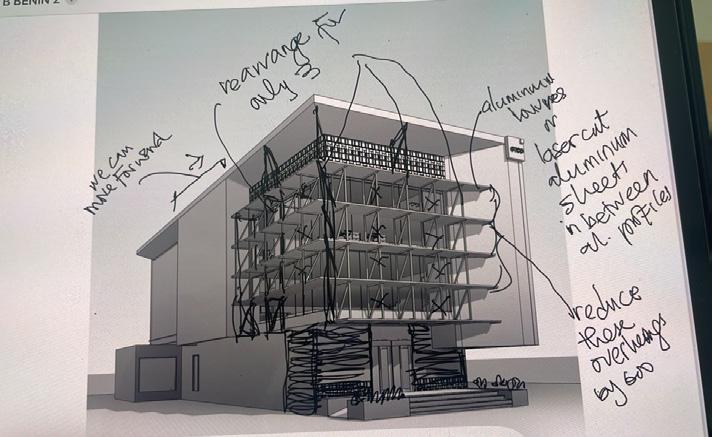 B BENIN 2
rearrange for
only 3
we can
move forward
aluminum
louvres
or
laser cut
aluminum
sheets
in between
al. profiles
reduce
these
overhangs
by 600